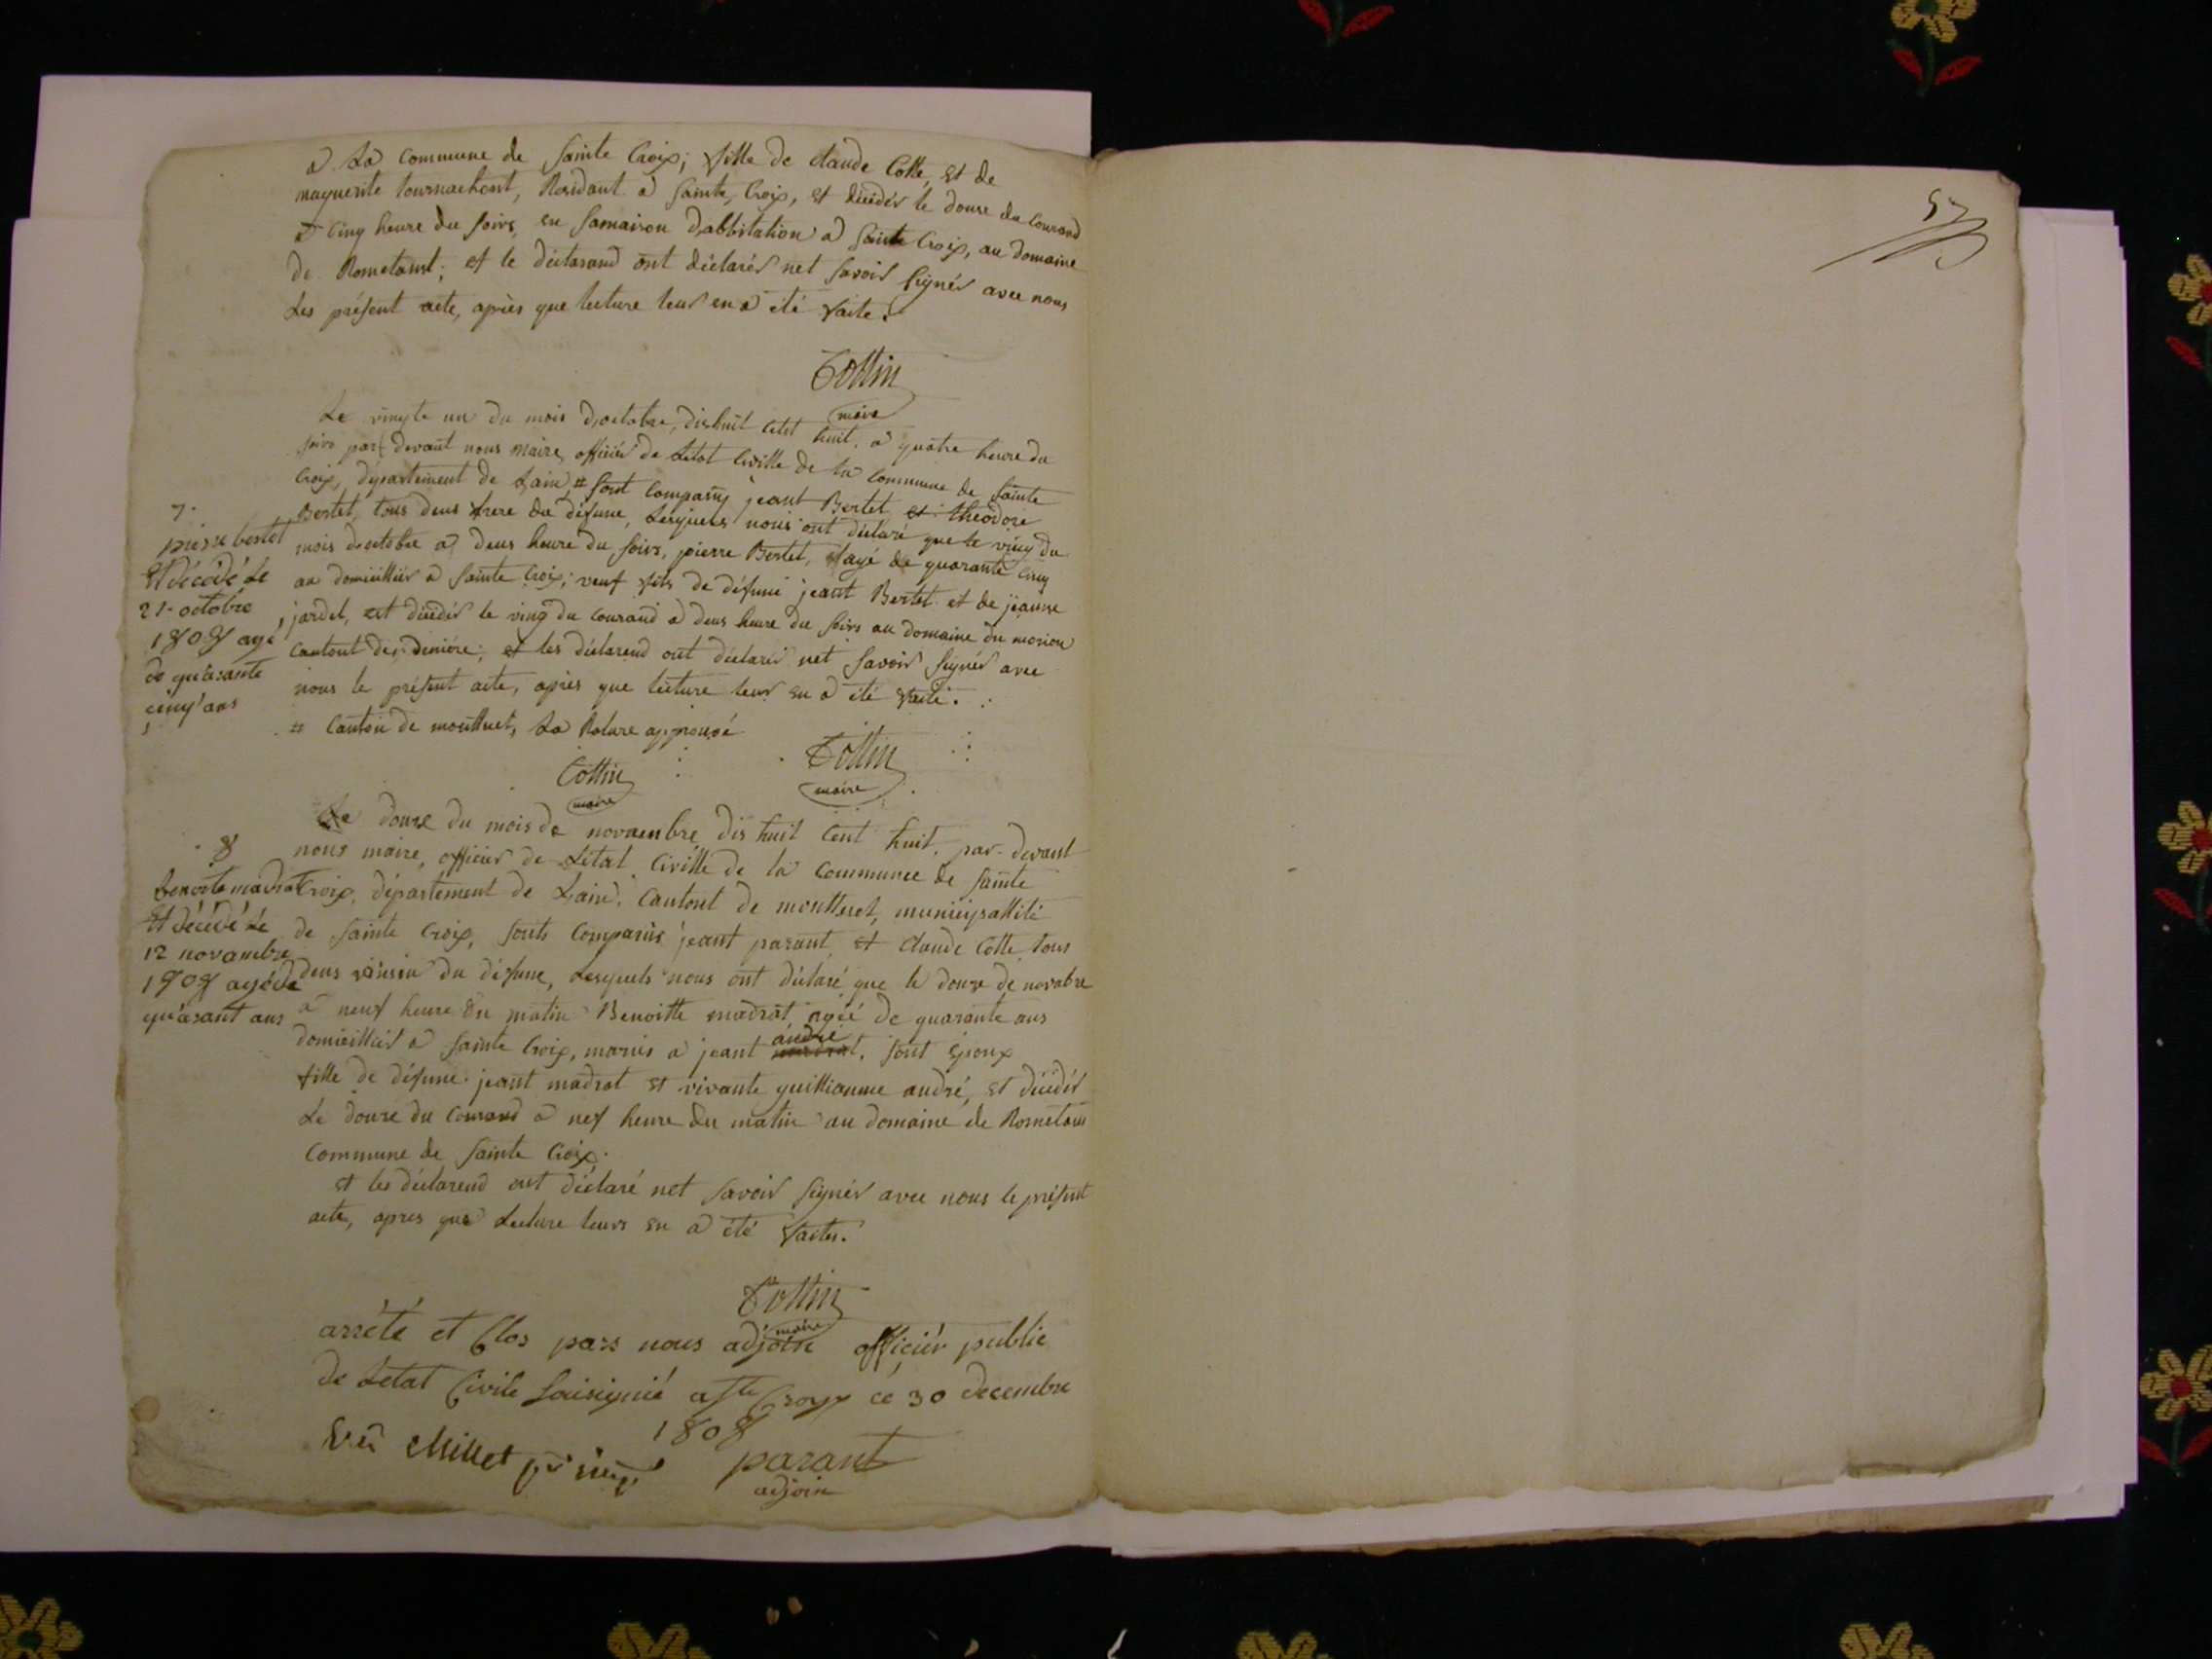 a La commune de Sainte Croix; fille de claude Cotte, et de
marguerite tournachont, Residant a Sainte Croix, et décédér le douse du Courand
a Cinq heure du soirs, en samaison D'abbitation a Sainte Croix, au domaine
de Rometant; et le déclarand ont déclarér net savoir signér avec nous
Les présent acte, après que lecture leur en a été faite.
Cottin
maire
Le vingte un du mois D'octobre, dishuit cent huit, a quatre heure du
soirs par devant nous maire, officiér de Létat Civille de la Commune de Sainte
Croix, département de Lain, # sont Comparus jeant Bertet et théodore
Bertet, tous deus frere du défune, Lesquels nous ont déclaré que le ving du
mois d'octobre a deus heure du soirs, pierre Bertet, agé de quarante Cinq
an domicilliér a Sainte Croix; veuf fils de défunt jeant Bertet et de jeanne
jardet, est décédér le ving du Courand a deus heure du soirs au domaine du
Cantont de; et les déclarend ont déclarér net savoir signér avec
nous le présent acte, après que lecture leur en a été faite.
# Canton de montluet, La Rature approuvé
Cottin
maire
Cottin
maire
7.
pierre bertet
Et décédé Le
21 octobre
1808 agé
de quarante
cinq ans
Le douse du mois de novembre dis huit Cent huit, par-devant
nous maire, officier de Létat Civille de la Commune de Sainte
Croix, département de Lain, Cantont de montluet, municipallité
de Sainte Croix, sonts Comparus jeant parant et claude Cotte tous
deus voisin du défune, Lesquels nous ont déclaré que le douse de novabre
a neuf heure du matin Benoitte madrat agéé de quarante ans
domicilliér a Sainte Croix, mariés a jeant andré, sont époux
fille de défunt jeant madrat et vivante guilliaume andré, et décédér
Le douse du Courand a nef heure du matin au domaine de Rometant
Commune de Sainte Croix.
et les déclarend ont déclaré net savoir signér avec nous le présent
acte, apres que Lecture leurs en a été faite.
8
benoite madrat
Et décédé Le
12 novambre
1808 agé de
quarant ans
Cottin
maire
arrété et Clos pars nous adjoin officiér public
de Letat Civile soisignié a Ste Croix ce 30 decembre
1808
Vu Millet
parant
adjoin
57